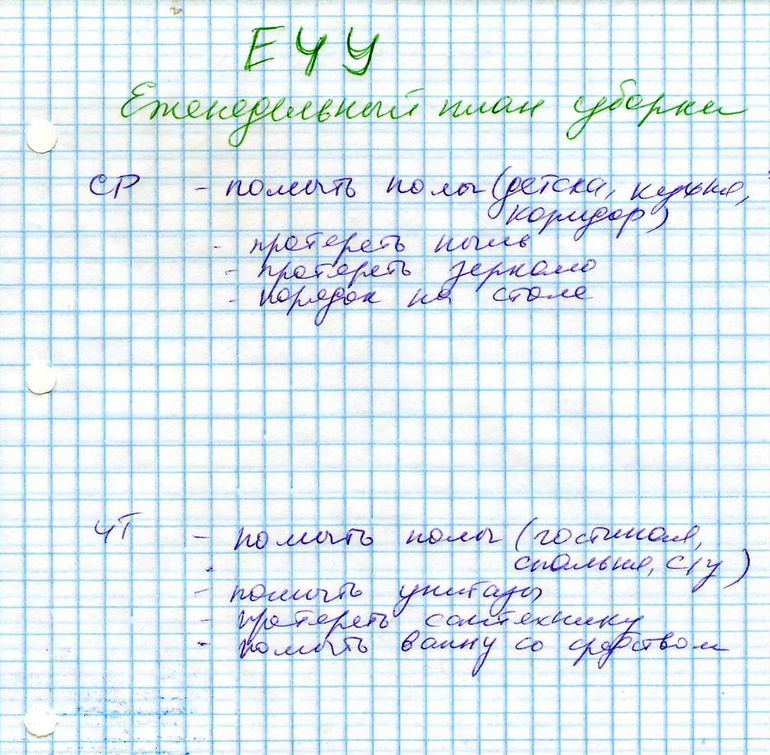 ЕЧУ
Еженедельный план уборки
СР - помыть полы (детска, кухня,
коридор)
- протереть пыль
- протереть зеркало
- порядок на столе
ЧТ - помыть полы (гостиная,
спальня, с/у)
- помыть унитазы
- протереть сантехнику
- помыть ванну со средством